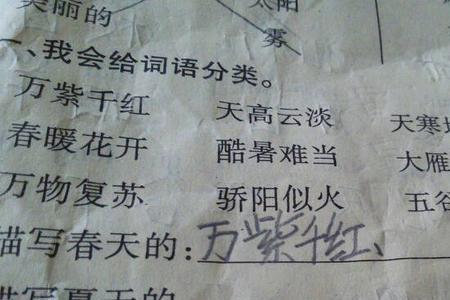 美丽的 太阳
雾
一、我会给词语分类。
万紫千红 天高云淡 天寒地
春暖花开 酷暑难当 大雁
万物复苏 骄阳似火 五谷
描写春天的:万紫千红、
描写夏天的